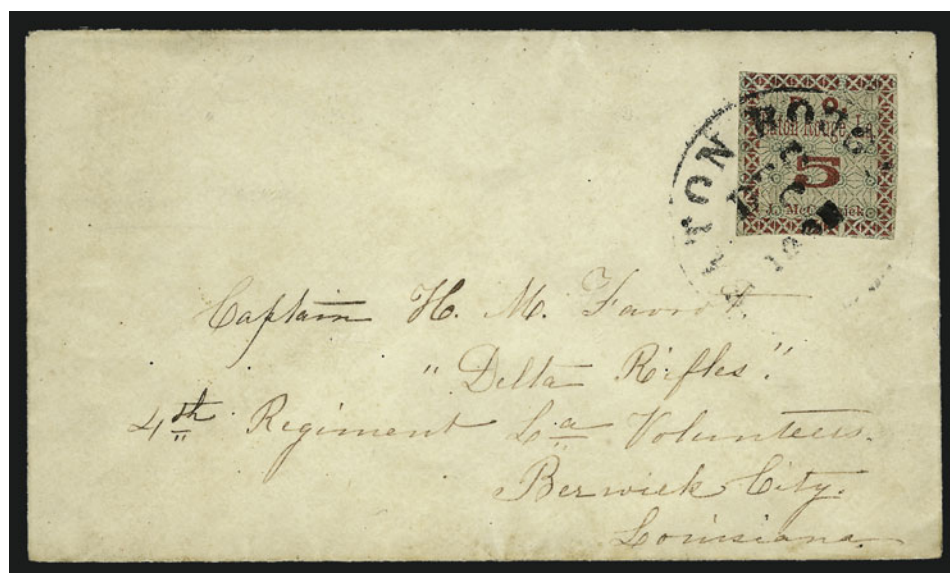 P. O.
Baton Rouge, La.
5
J. McCormick
TON ROUG
Captain H. M. Favrot.
"Delta Rifles".
4th Regiment La Volunteers.
Berwick City.
Louisiana